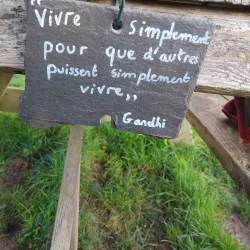 “ Vivre simplement
pour que d'autres
puissent simplement
vivre „
Gandhi